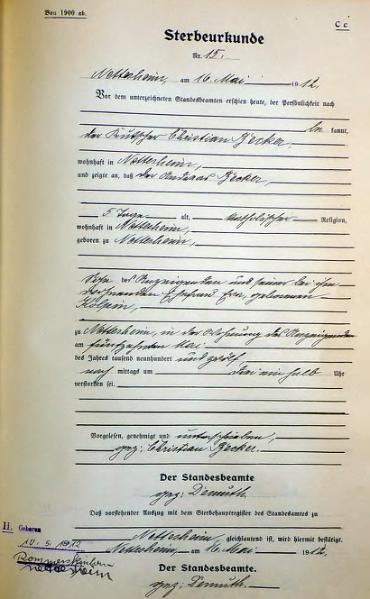 Bau 1900 ab.
C c
Sterbeurkunde
Nr. 15.
Netterheim, am 16. Mai 1912.
Vor dem unterzeichneten Standesbeamten erschien heute, der Persönlichkeit nach
be kannt,
der Christian Becker,
wohnhaft in Netterheim,
und zeigte an, daß der Andreas Becker,
5 Tage alt, katholischer Religion,
wohnhaft in Netterheim,
geboren zu Netterheim,
Sohn des Anzeigenden und seiner bei ihm
wohnenden Ehefrau geborenen
zu Netterheim, in der Wohnung des Anzeigenden
am fünfzehnten Mai
des Jahres tausend neunhundert und zwölf
nach mittags um ein halb Uhr
verstorben sei.
Vorgelesen, genehmigt und unterschrieben,
gez: Christian Becker.
Der Standesbeamte
gez: Demuth.
Daß vorstehender Auszug mit dem Sterbehauptregister des Standesamtes zu
Netterheim gleichlautend ist, wird hiermit bestätigt.
Netterheim, am 16. Mai 1912.
Der Standesbeamte.
gez: Demuth.
H. Geboren
10. 5. 1912
Netterheim